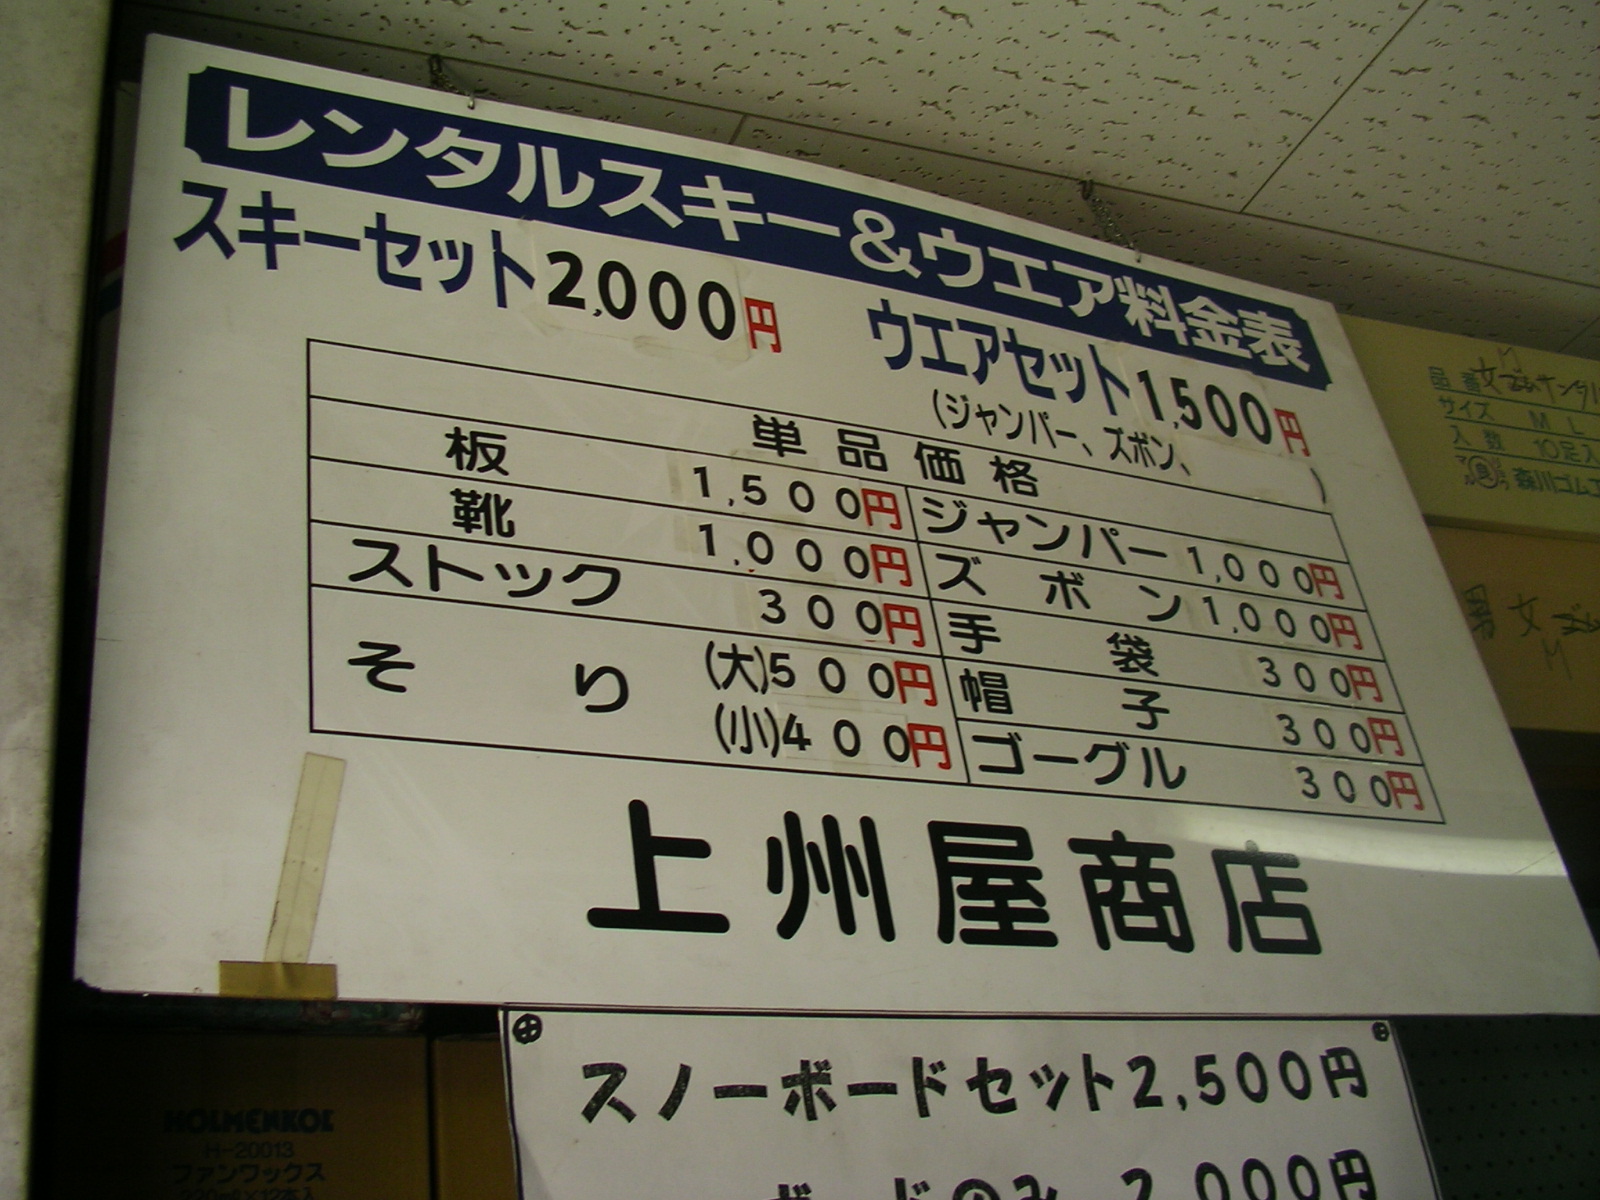 レンタルスキー&ウエア料金表
スキーセット2,000円
ウエアセット1,500円
(ジャンパー、ズボン、 )
単品価格
板 1,500円 ジャンパー 1,000円
靴 1,000円 ズボン 1,000円
ストック 300円 手袋 300円
そり (大)500円 帽子 300円
(小)400円 ゴーグル 300円
上州屋商店
スノーボードセット2,500円
ボードのみ 2,000円
HOLMENKOL
H-20013
ファンワックス
品番
サイズ M L
入数 10足入
森川ゴム工
男 女
M